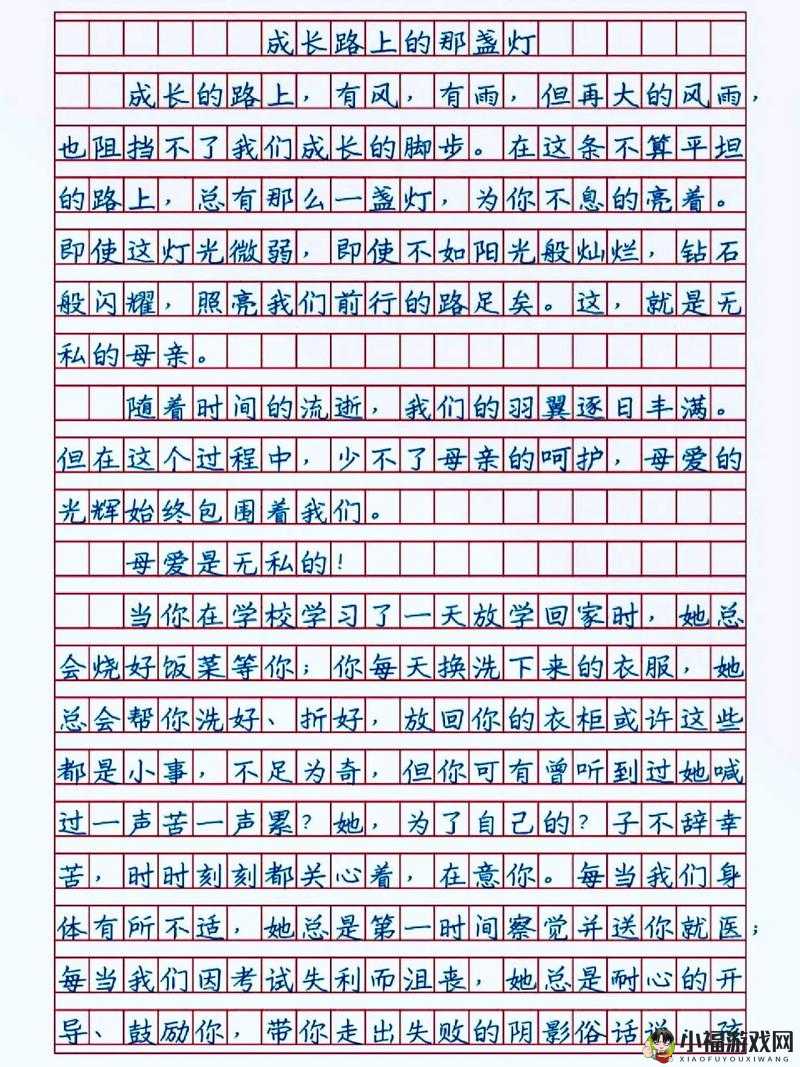 成长路上的那盏灯
成长的路上，有风，有雨，但再大的风雨，
也阻挡不了我们成长的脚步。在这条不算平坦
的路上，总有那么一盏灯，为你不息的亮着。
即使这灯光微弱，即使不如阳光般灿烂，钻石
般闪耀，照亮我们前行的路足矣。这，就是无
私的母亲。
随着时间的流逝，我们的羽翼逐日丰满。
但在这个过程中，少不了母亲的呵护，母爱的
光辉始终包围着我们。
母爱是无私的！
当你在学校学习了一天放学回家时，她总
会烧好饭菜等你；你每天换洗下来的衣服，她
总会帮你洗好、折好，放回你的衣柜或许这些
都是小事，不足为奇，但你可有曾听到过她喊
过一声苦一声累？她，为了自己的？子不辞幸
苦，时时刻刻都关心着，在意你。每当我们身
体有所不适，她总是第一时间察觉并送你就医；
每当我们因考试失利而沮丧，她总是耐心的开
导、鼓励你，带你走出失败的阴影俗话说
小福游戏网
XIAOFUYOUXIWANG